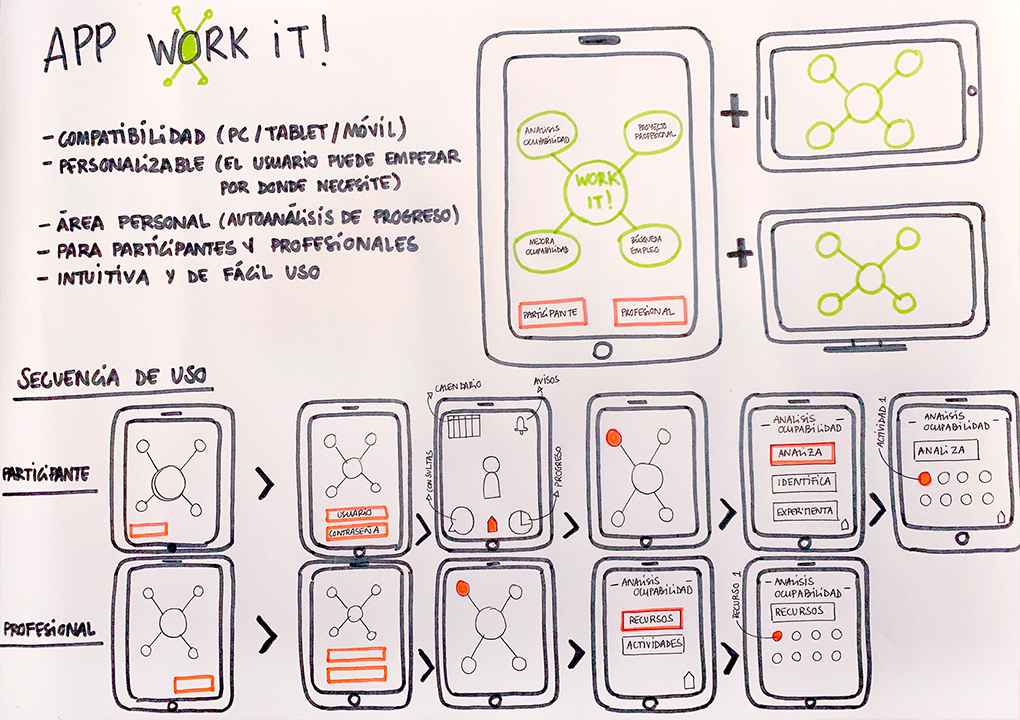 APP WORK iT!
- COMPATIBILIDAD (PC/TABLET/MÓVIL)
- PERSONALIZABLE (EL USUARIO PUEDE EMPEZAR
POR DONDE NECESITE)
- ÁREA PERSONAL (AUTOANÁLISIS DE PROGRESO)
- PARA PARTICIPANTES Y PROFESIONALES
- INTUITIVA Y DE FÁCIL USO
ANALISIS
OCUPABILIDAD
PROYECTO
PROFESIONAL
WORK
IT!
MEJORA
OCUPABILIDAD
BÚSQUEDA
EMPLEO
PARTICIPANTE
PROFESIONAL
+
+
SECUENCIA DE USO
PARTICIPANTE
>
USUARIO
CONTRASEÑA
>
CALENDARIO
AVISOS
CONSULTAS
PROGRESO
>
>
- ANALISIS -
OCUPABILIDAD
ANALIZA
IDENTIFICA
EXPERIMENTA
>
ACTIVIDAD 1
- ANALISIS -
OCUPABILIDAD
ANALIZA
PROFESIONAL
>
>
>
- ANALISIS -
OCUPABILIDAD
RECURSOS
ACTIVIDADES
>
RECURSO 1
- ANALISIS -
OCUPABILIDAD
RECURSOS